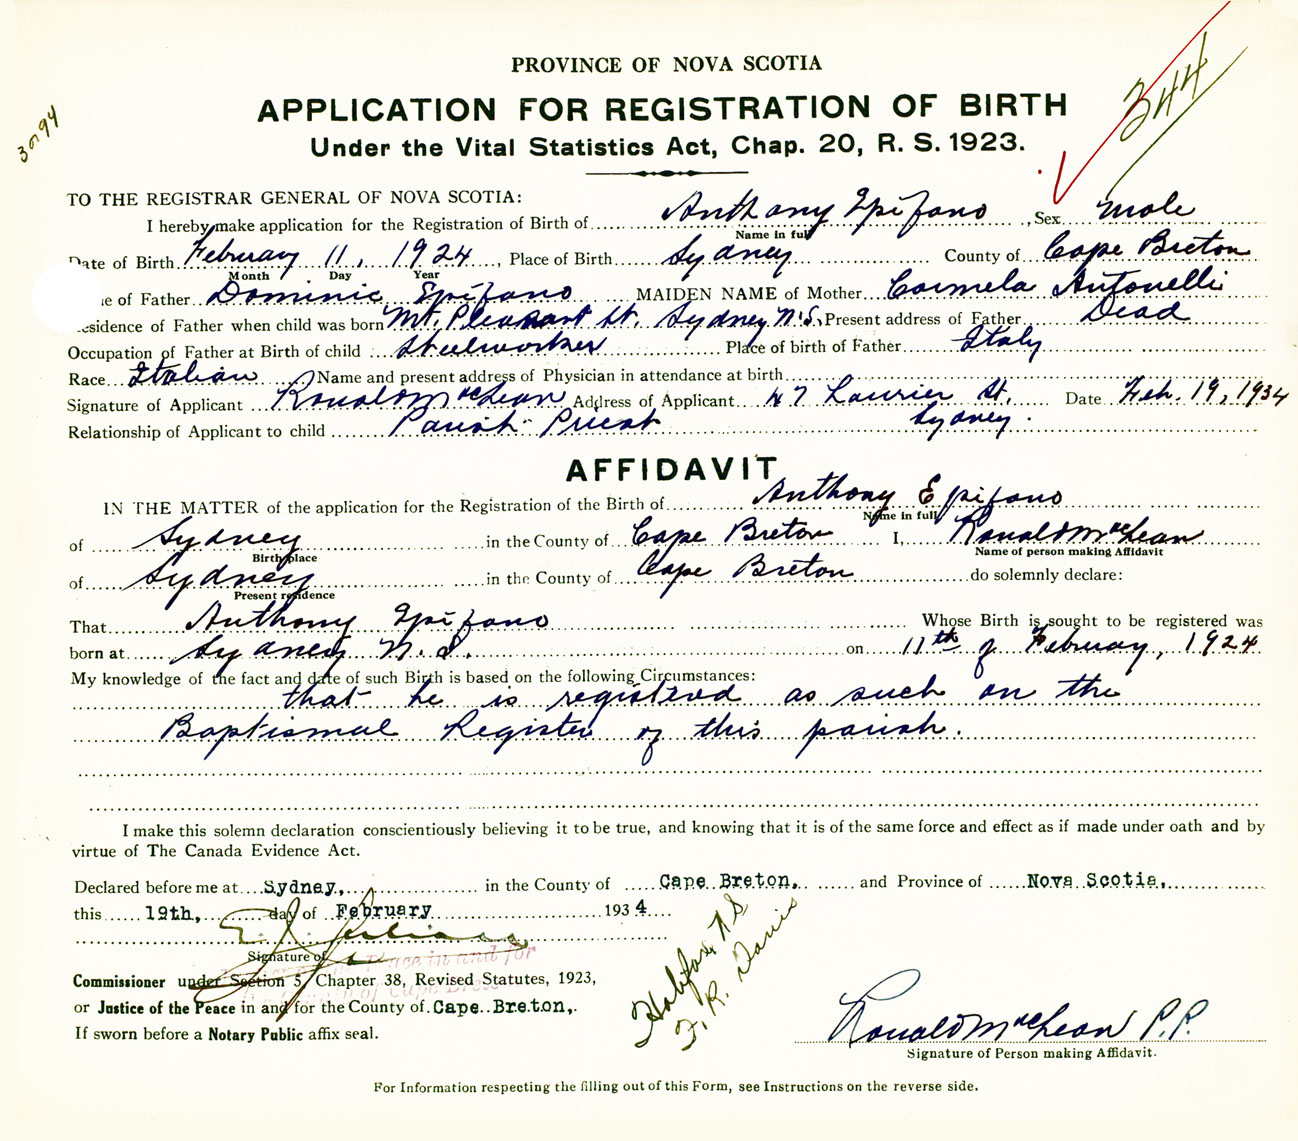 PROVINCE OF NOVA SCOTIA
APPLICATION FOR REGISTRATION OF BIRTH
Under the Vital Statistics Act, Chap. 20, R. S. 1923.
344
TO THE REGISTRAR GENERAL OF NOVA SCOTIA:
I hereby make application for the Registration of Birth of Anthony Epifano, Sex Male
Name in full
Date of Birth February 11, 1924, Place of Birth Sydney County of Cape Breton
Month Day Year
of Father Dominic Epifano MAIDEN NAME of Mother Carmela Antonelli
esidence of Father when child was born Mt. Pleasant St. Sydney N.S. Present address of Father Dead
Occupation of Father at Birth of child Steelworker Place of birth of Father Italy
Race Italian Name and present address of Physician in attendance at birth
Signature of Applicant Ronald MacLean Address of Applicant 47 Laurier St. Date Feb. 19, 1934
Relationship of Applicant to child Parish Priest Sydney.
AFFIDAVIT
IN THE MATTER of the application for the Registration of the Birth of Anthony Epifano
Name in full
of Sydney in the County of Cape Breton I, Ronald MacLean
Birthplace Name of person making Affidavit
of Sydney in the County of Cape Breton do solemnly declare:
Present residence
That Anthony Epifano Whose Birth is sought to be registered was
born at Sydney N.S. on 11th of February, 1924
My knowledge of the fact and date of such Birth is based on the following Circumstances:
that he is registered as such on the
Baptismal Register of this parish.
I make this solemn declaration conscientiously believing it to be true, and knowing that it is of the same force and effect as if made under oath and by
virtue of The Canada Evidence Act.
Declared before me at Sydney, in the County of Cape Breton, and Province of Nova Scotia,
this 19th, day of February 1934
Signature of
Commissioner under Section 5, Chapter 38, Revised Statutes, 1923,
or Justice of the Peace in and for the County of Cape Breton,
If sworn before a Notary Public affix seal.
Halifax N S
F. R. Davis
Ronald MacLean P.P.
Signature of Person making Affidavit.
For Information respecting the filling out of this Form, see Instructions on the reverse side.